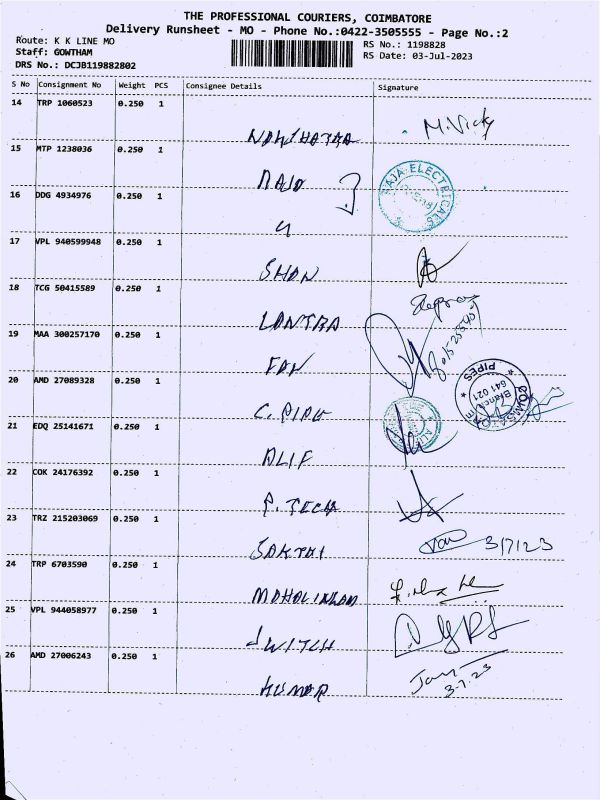 THE PROFESSIONAL COURIERS, COIMBATORE
Delivery Runsheet - MO - Phone No.:0422-3505555 - Page No.:2
Route: K K LINE MO
Staff: GOWTHAM
DRS No.: DCJB119882802
RS No.: 1198828
RS Date: 03-Jul-2023
S No Consignment No Weight PCS Consignee Details Signature
14 TRP 1060523 0.250 1
M.Vicky
15 MTP 1238036 0.250 1
RAJA ELECTRICALS
16 DDG 4934976 0.250 1
17 VPL 940599948 0.250 1
SHAN
18 TCG 50415589 0.250 1
LANTRA
19 MAA 300257170 0.250 1
FAN
PIPES
641 021
20 AMD 27089328 0.250 1
21 EDQ 25141671 0.250 1
ALIF
22 COK 24176392 0.250 1
P. TECH
23 TRZ 215203069 0.250 1
SAKTHI 3/7/23
24 TRP 6703590 0.250 1
MAHALINGAM
25 VPL 944058977 0.250 1
SWITCH
26 AMD 27006243 0.250 1
KUMAR
3-7-23